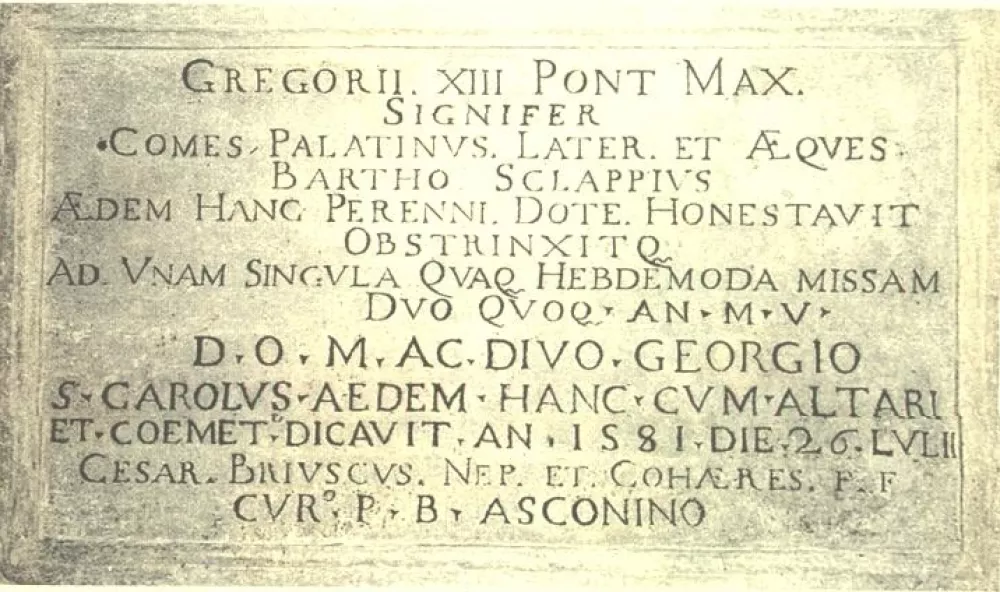 GREGORII. XIII PONT MAX.
SIGNIFER
•COMES, PALATINVS. LATER. ET ÆQVES.
BARTHO SCLAPPIVS
ÆDEM HANC PERENNI. DOTE. HONESTAVIT
OBSTRINXITQ
AD. VNAM SINGVLA QVAQ HEBDEMODA MISSAM
DVO QVOQ • AN • M • V •
D. O. M. AC. DIVO. GEORGIO
S • CAROLVS • AEDEM • HANC • CVM • ALTARI
ET • COEMET. DICAVIT. AN. 1581. DIE. 26. LVLII
CESAR. BRIVSCVS. NEP. ET. COHÆRES. F. F
CVR.º P. B. ASCONINO